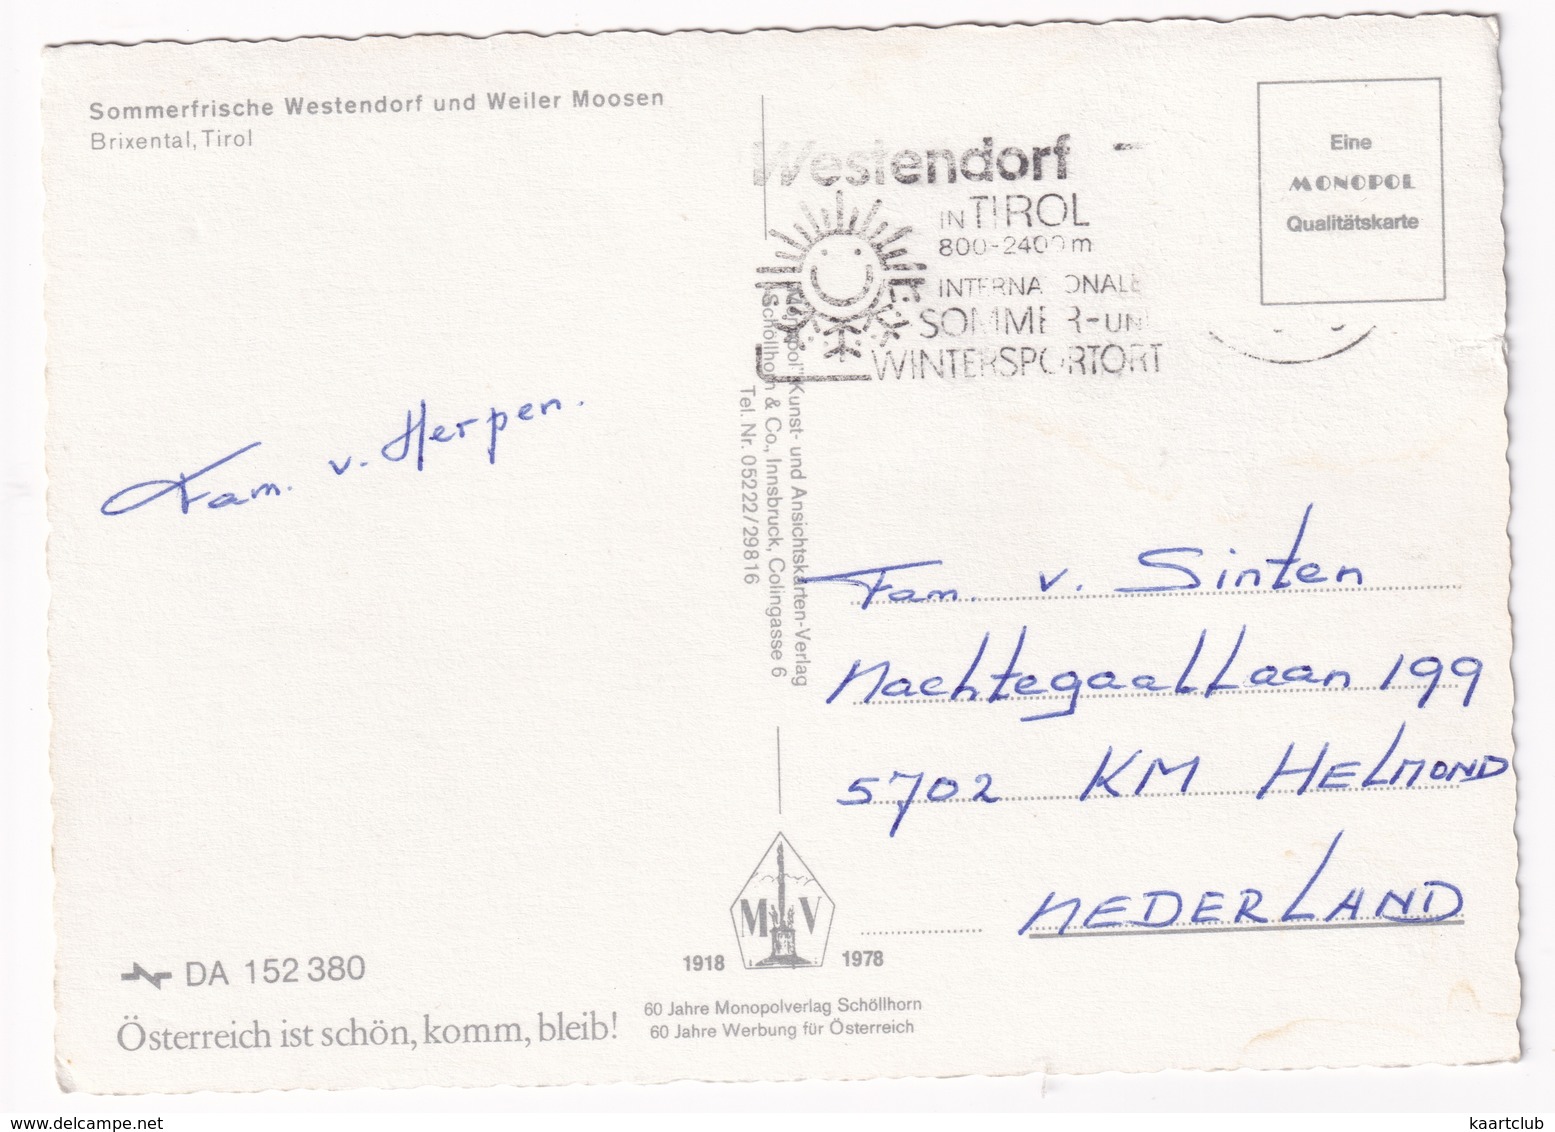 Sommerfrische Westendorf und Weiler Moosen
Brixental, Tirol
Westendorf
IN TIROL
800-2400 m
INTERNATIONALE
SOMMER-UND
WINTERSPORTORT
Eine
MONOPOL
Qualitätskarte
Fam. v. Herpen.
"Monopol" Kunst- und Ansichtskarten-Verlag
Schöllhorn & Co., Innsbruck, Colingasse 6
Tel. Nr. 05222/29816
Fam. v. Sinten
Nachtegaallaan 199
5702 KM HELMOND
NEDERLAND
M V
1918 1978
60 Jahre Monopolverlag Schöllhorn
60 Jahre Werbung für Österreich
DA 152 380
Österreich ist schön, komm, bleib!
kaartclub